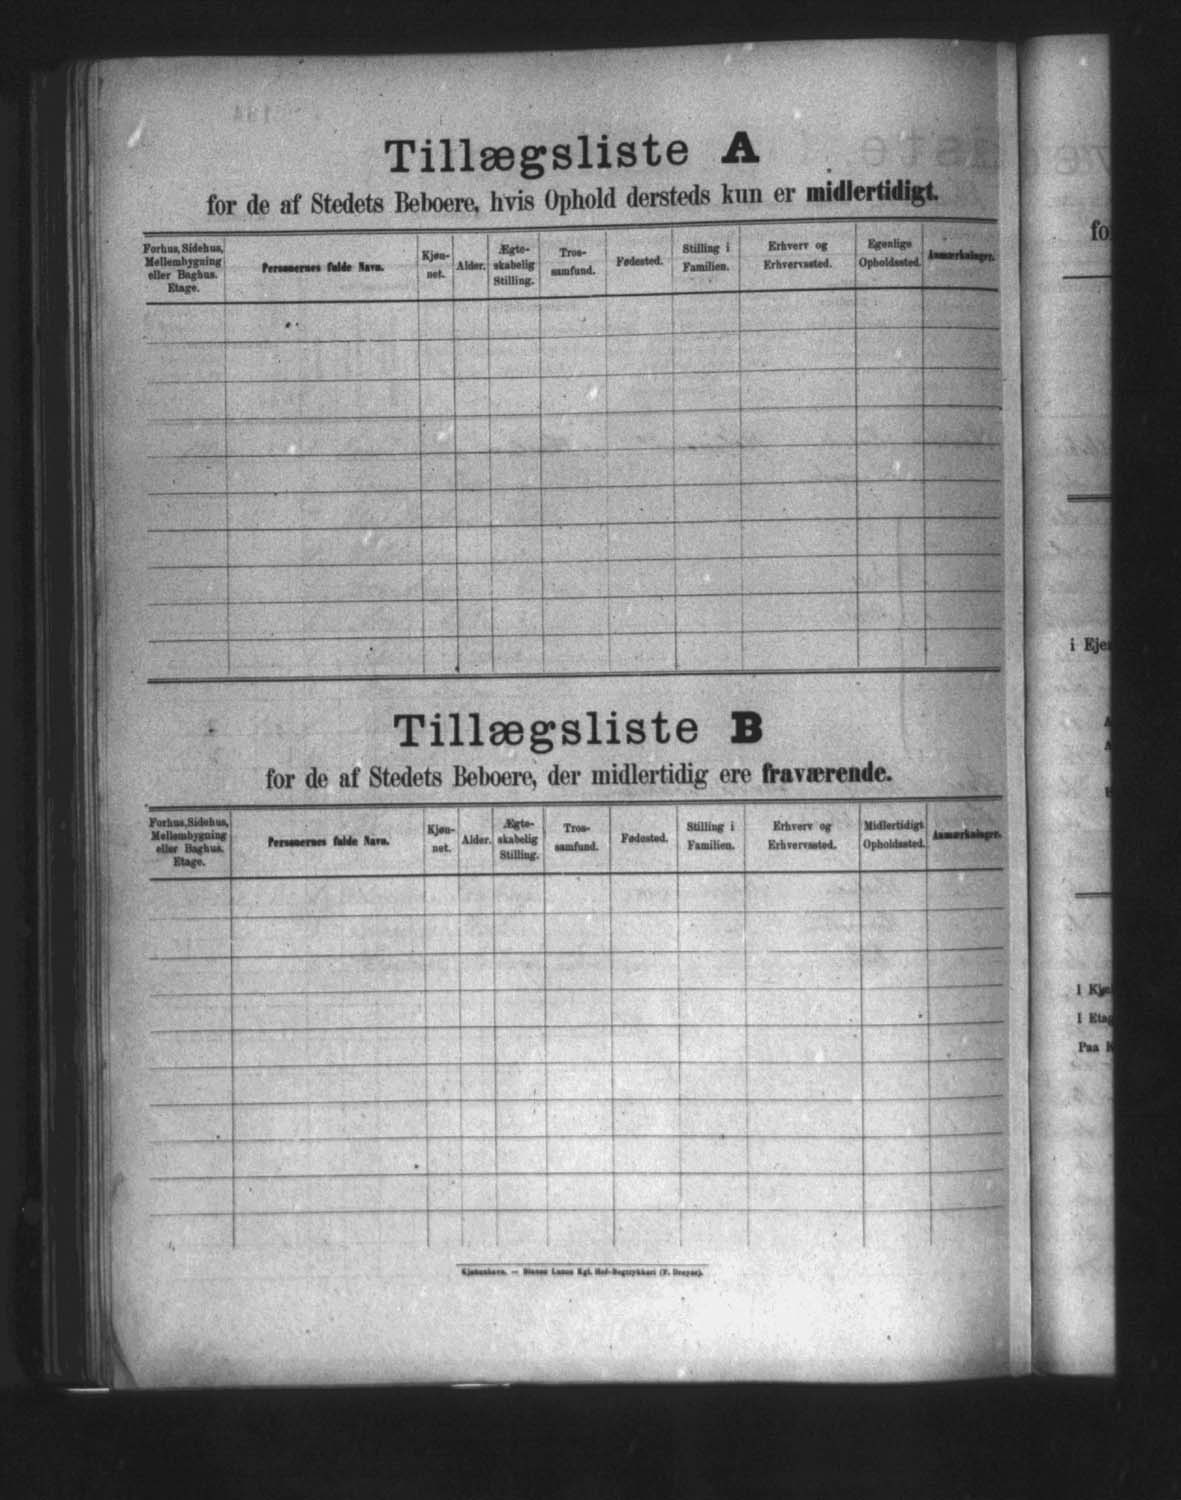 Tillægsliste A
for de af Stedets Beboere, hvis Ophold dersteds kun er midlertidigt.
Forhus, Sidehus, Mellembygning eller Baghus. Etage.
Personernes fulde Navn.
Kjøn-
net.
Alder.
Ægte-
skabelig
Stilling.
Tros-
samfund.
Fødested.
Stilling i
Familien.
Erhverv og
Erhvervssted.
Egenlige
Opholdssted.
Anmærkninger.
Tillægsliste B
for de af Stedets Beboere, der midlertidig ere fraværende.
Forhus, Sidehus,
Mellembygning
eller Baghus.
Etage.
Personernes fulde Navn.
Kjøn-
net.
Alder.
Ægte-
skabelig
Stilling.
Tros-
samfund.
Fødested.
Stilling i
Familien.
Erhverv og
Erhvervssted.
Midlertidigt
Opholdssted.
Anmærkninger.
Kjøbenhavn. — Bianco Lunos Kgl. Hof-Bogtrykkeri (F. Dreyer).
fo
i Eje
I Kjæ
I Etag
Paa K